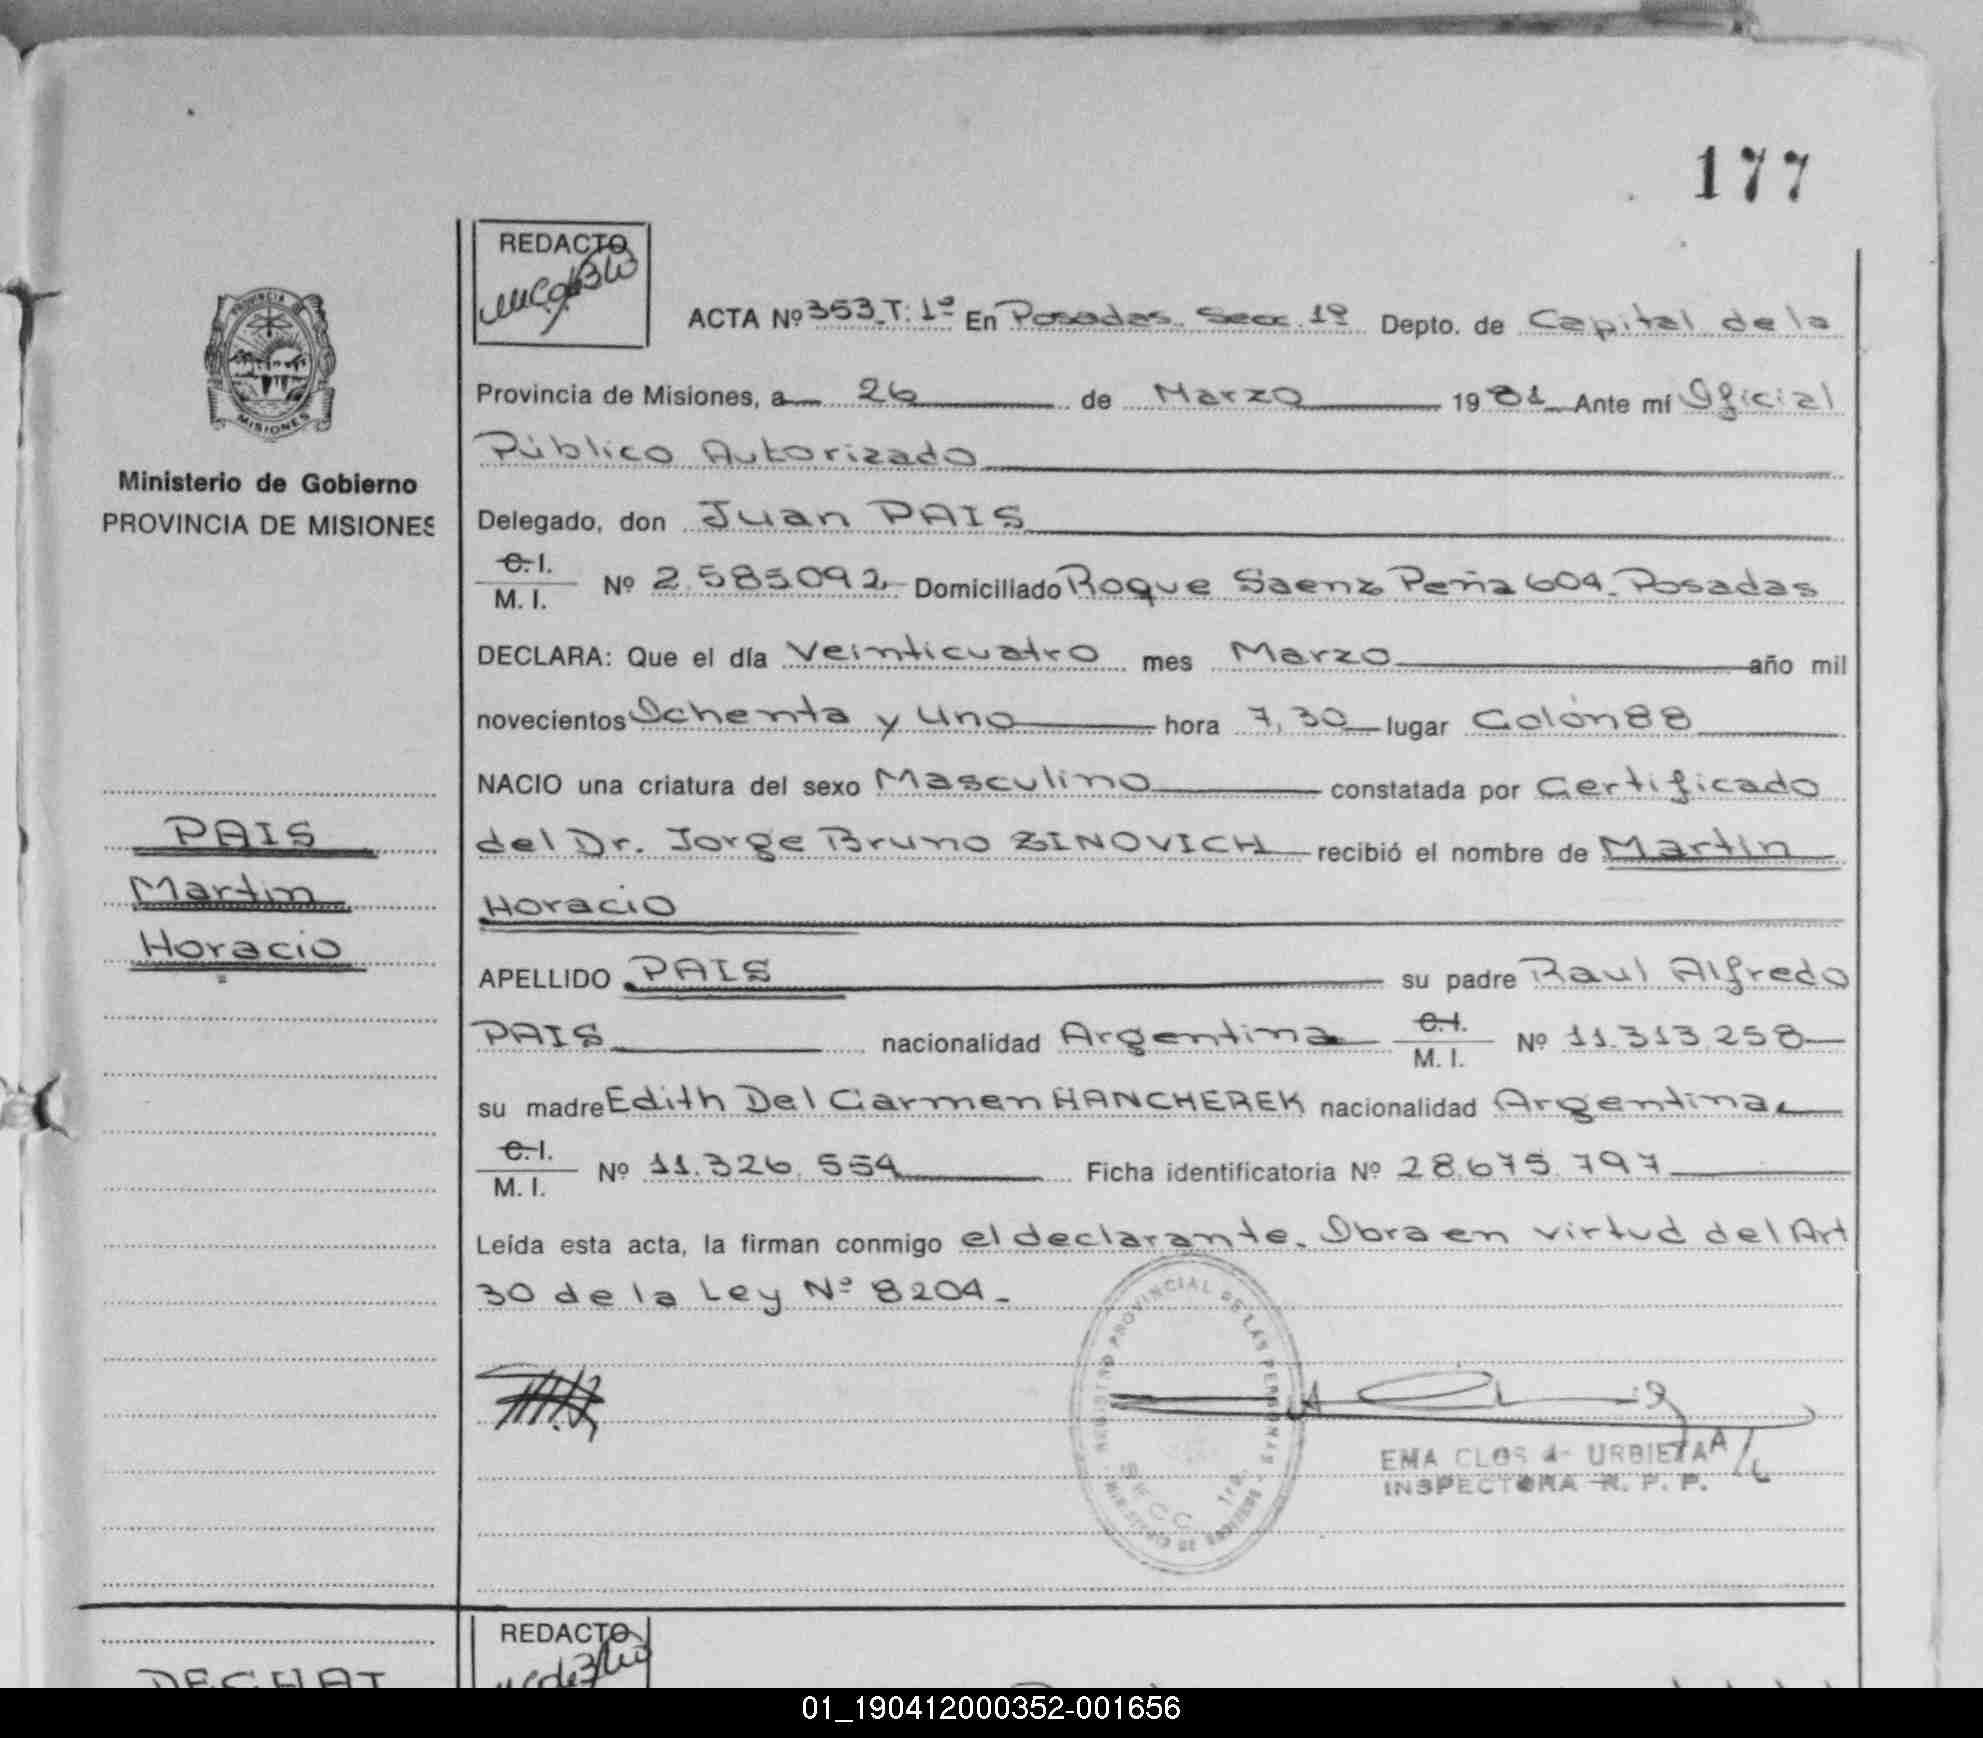 177
REDACTO
ACTA Nº 353 T: 1º En Posadas. Secc. 1º Depto. de Capital de la
Provincia de Misiones, a 26 de Marzo 1981 Ante mí Oficial
Público Autorizado
Delegado, don Juan PAIS
C. I.
M. I. Nº 2.585092 Domiciliado Roque Saenz Peña 604. Posadas
DECLARA: Que el día Veinticuatro mes Marzo año mil
novecientos Ochenta y Uno hora 7,30 lugar Colón 88
NACIO una criatura del sexo Masculino constatada por Certificado
del Dr. Jorge Bruno ZINOVICH recibió el nombre de Martín
Horacio
APELLIDO PAIS su padre Raul Alfredo
PAIS nacionalidad Argentina C. I.
M. I. Nº 11.313.258
su madre Edith Del Carmen HANCHEREK nacionalidad Argentina
C. I.
M. I. Nº 11.326.554 Ficha identificatoria Nº 28.675.797
Leída esta acta, la firman conmigo el declarante. Obra en virtud del Art
30 de la Ley Nº 8204.
REGISTRO PROVINCIAL DE LAS PERSONAS
SECC. 1ra.
MINISTERIO DE GOBIERNO
EMA CLOS de URBIETA A/C
INSPECTORA R. P. P.
PROVINCIA DE
MISIONES
Ministerio de Gobierno
PROVINCIA DE MISIONES
PAIS
Martín
Horacio
REDACTO
DECHAT
01_190412000352-001656